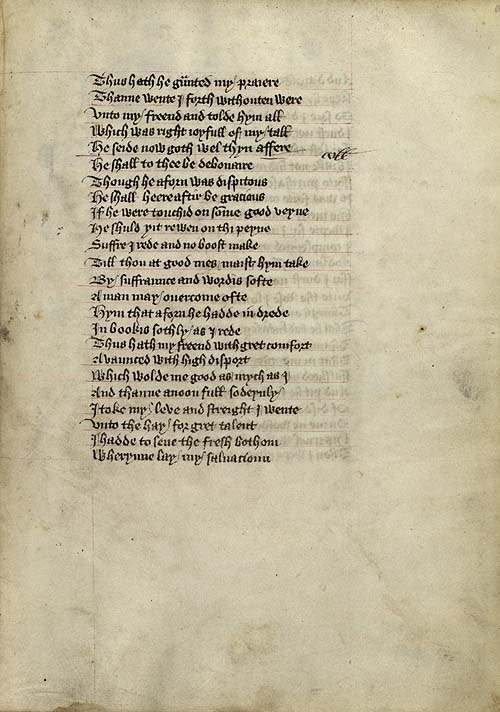 Thus hath he gūnted my praiere
Thanne wente I forth withouten were
Vnto my freend and tolde hym all
Which was right ioyfull of my tall
He seide now goth wel thyn affere
He shall to thee be debonaire
Though he aforn was dispitous
He shall heere aftir be gracious
If he were touchid on som̄e good veyne
He shuld yit rewen on thi peyne
Suffre I rede and no boost make
Till thou at good mes maist hym take
By suffrannce and wordis softe
A man may ouercome ofte
Hym that aforn he hadde in drede
In bookis sothly as I rede
Thus hath my freend with gret comfort
Avaunted with high disport
Which wolde me good as mych as I
And thanne anoon full sodeynly
I toke my leve and streight I wente
Vnto the hay for gret talent
I hadde to seue the fresh bothom
Wherynne lay my saluacioun